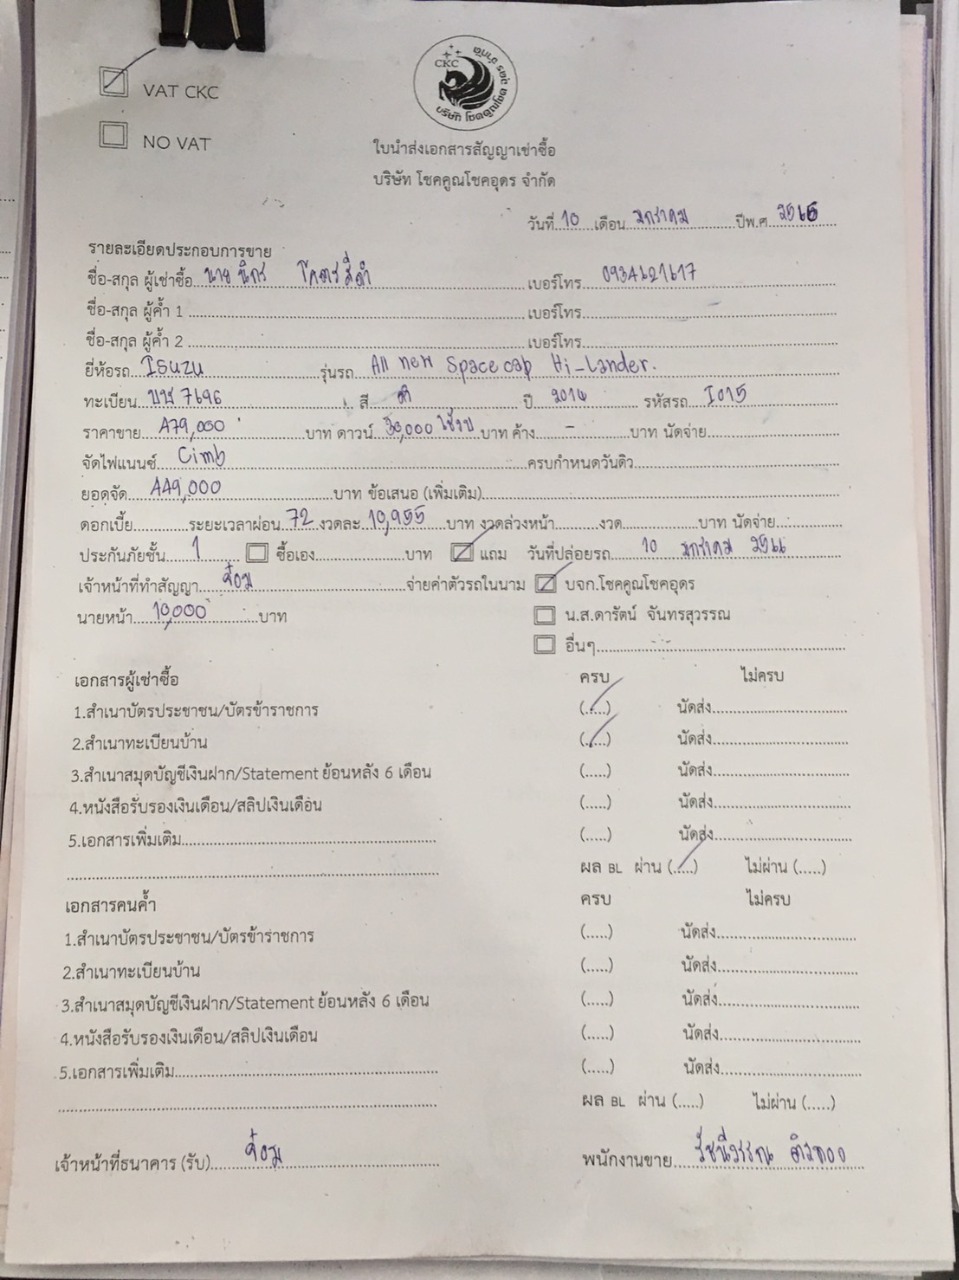 VAT CKC
NO VAT
CKC
บริษัท โชคคูณโชคอุดร จำกัด
ใบนำส่งเอกสารสัญญาเช่าซื้อ
บริษัท โชคคูณโชคอุดร จำกัด
วันที่ 10 เดือน มกราคม ปีพ.ศ 2566
รายละเอียดประกอบการขาย
ชื่อ-สกุล ผู้เช่าซื้อ นาย นิกร โคตรสีดำ เบอร์โทร 0934621617
ชื่อ-สกุล ผู้ค้ำ 1 เบอร์โทร
ชื่อ-สกุล ผู้ค้ำ 2 เบอร์โทร
ยี่ห้อรถ ISUZU รุ่นรถ All new Spacecab Hi-Lander.
ทะเบียน 7696 สี ดำ ปี 2014 รหัสรถ I015
ราคาขาย 479,000 บาท ดาวน์ 30,000 บาท ค้าง - บาท นัดจ่าย
จัดไฟแนนซ์ Cimb ครบกำหนดวันดิว
ยอดจัด 449,000 บาท ข้อเสนอ (เพิ่มเติม)
ดอกเบี้ย ระยะเวลาผ่อน 72 งวดละ 10,955 บาท งวดล่วงหน้า งวด บาท นัดจ่าย
ประกันภัยชั้น 1 ซื้อเอง บาท แถม วันที่ปล่อยรถ 10 มกราคม 2566
เจ้าหน้าที่ทำสัญญา จ่ายค่าตัวรถในนาม บจก.โชคคูณโชคอุดร
นายหน้า 10,000 บาท น.ส.ดารัตน์ จันทรสุวรรณ
อื่นๆ
เอกสารผู้เช่าซื้อ ครบ ไม่ครบ
1.สำเนาบัตรประชาชน/บัตรข้าราชการ (.....) นัดส่ง
2.สำเนาทะเบียนบ้าน (.....) นัดส่ง
3.สำเนาสมุดบัญชีเงินฝาก/Statement ย้อนหลัง 6 เดือน (.....) นัดส่ง
4.หนังสือรับรองเงินเดือน/สลิปเงินเดือน (.....) นัดส่ง
5.เอกสารเพิ่มเติม (.....) นัดส่ง
ผล BL ผ่าน (.....) ไม่ผ่าน (.....)
เอกสารคนค้ำ ครบ ไม่ครบ
1.สำเนาบัตรประชาชน/บัตรข้าราชการ (.....) นัดส่ง
2.สำเนาทะเบียนบ้าน (.....) นัดส่ง
3.สำเนาสมุดบัญชีเงินฝาก/Statement ย้อนหลัง 6 เดือน (.....) นัดส่ง
4.หนังสือรับรองเงินเดือน/สลิปเงินเดือน (.....) นัดส่ง
5.เอกสารเพิ่มเติม (.....) นัดส่ง
ผล BL ผ่าน (.....) ไม่ผ่าน (.....)
เจ้าหน้าที่ธนาคาร (รับ) พนักงานขาย รัชนีวรรณ